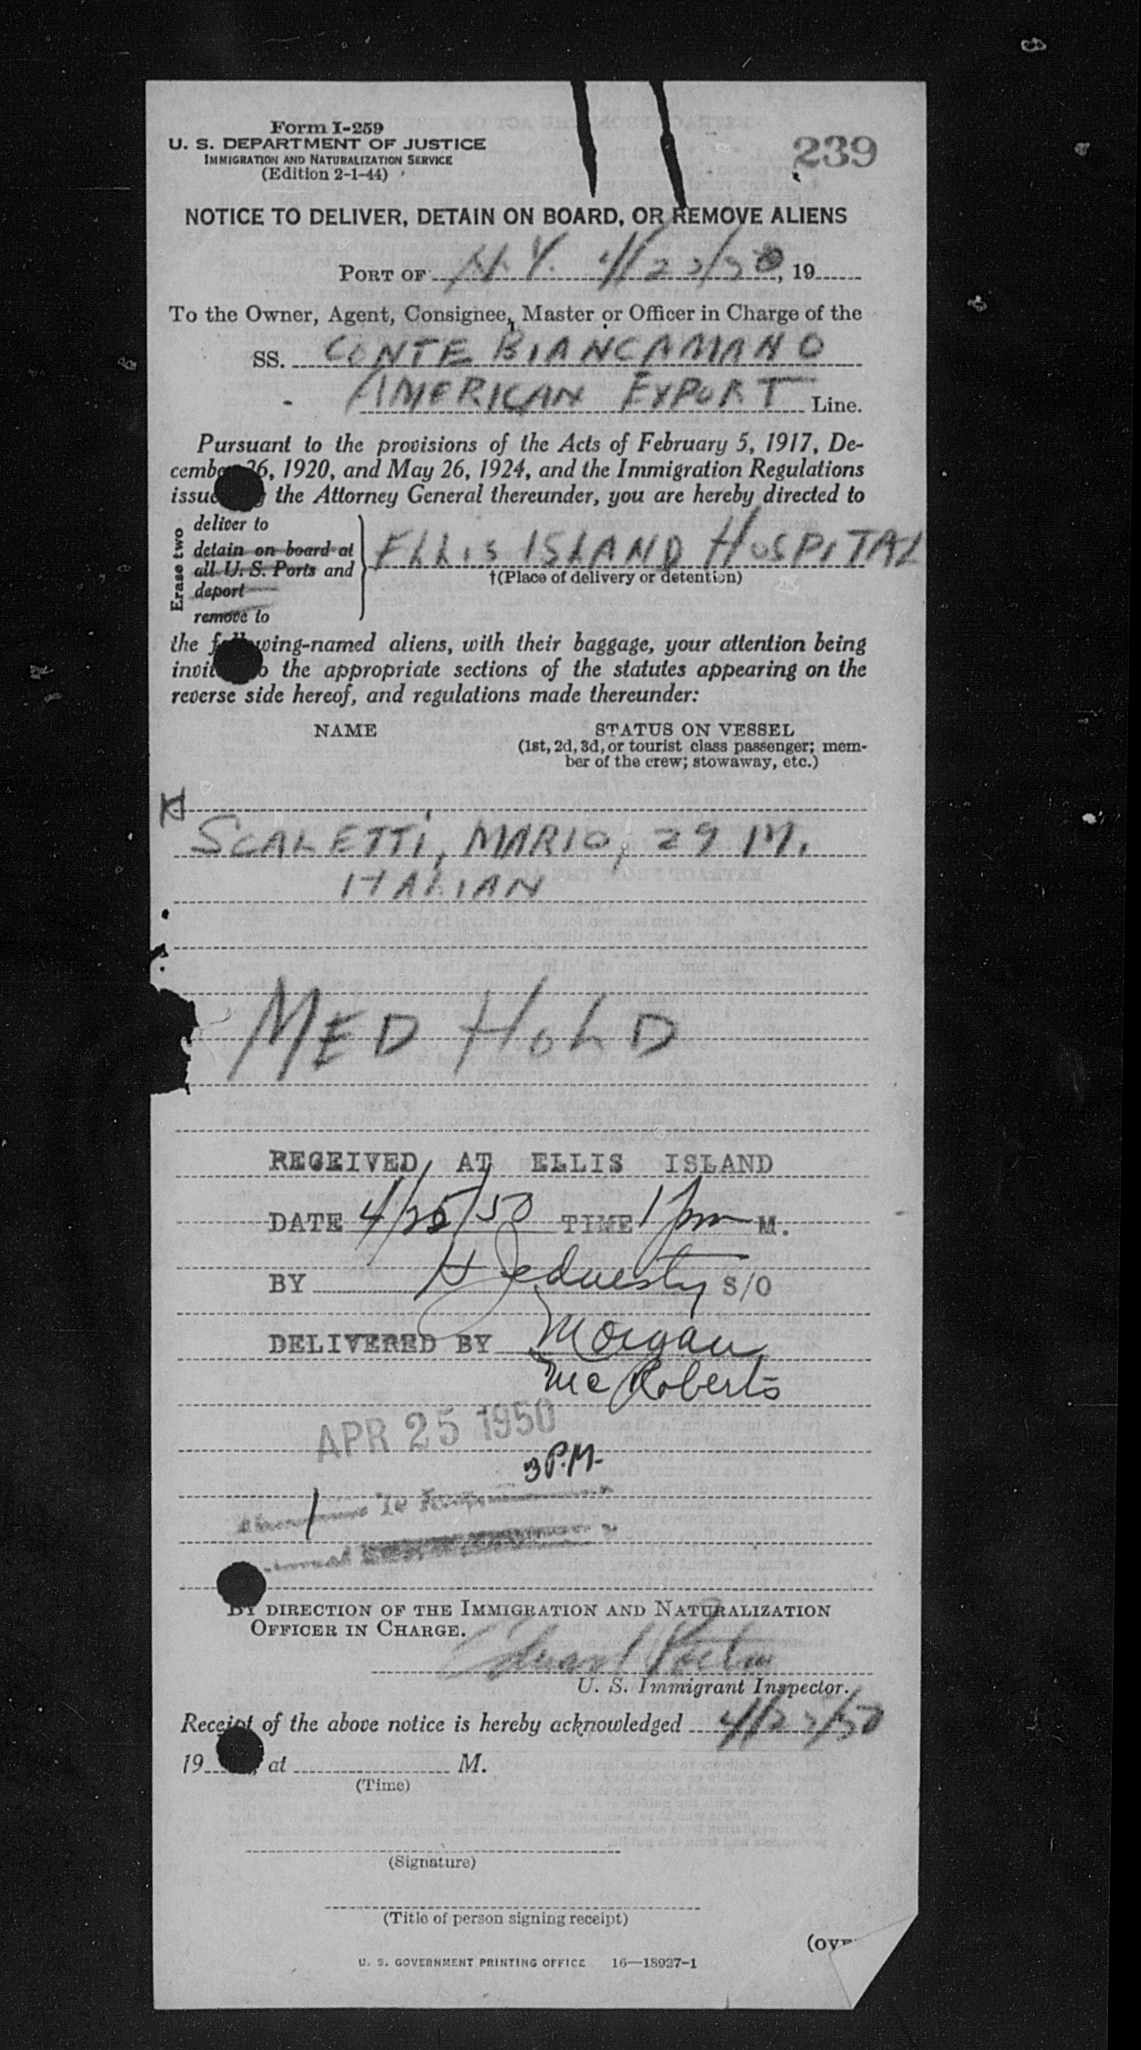 Form I-259
U. S. DEPARTMENT OF JUSTICE
IMMIGRATION AND NATURALIZATION SERVICE
(Edition 2-1-44)
239
NOTICE TO DELIVER, DETAIN ON BOARD, OR REMOVE ALIENS
PORT OF N.Y. , 19
To the Owner, Agent, Consignee, Master or Officer in Charge of the
SS. CONTE BIANCAMANO
AMERICAN EXPORT Line.
Pursuant to the provisions of the Acts of February 5, 1917, De-
cember 26, 1920, and May 26, 1924, and the Immigration Regulations
issued by the Attorney General thereunder, you are hereby directed to
Erase two
deliver to
detain on board at
all U. S. Ports and
deport
remove to
ELLIS ISLAND HOSPITAL
†(Place of delivery or detention)
the following-named aliens, with their baggage, your attention being
invited to the appropriate sections of the statutes appearing on the
reverse side hereof, and regulations made thereunder:
NAME STATUS ON VESSEL
(1st, 2d, 3d, or tourist class passenger; mem-
ber of the crew; stowaway, etc.)
SCALETTI, MARIO, 29 M.
ITALIAN
MED HOLD
RECEIVED AT ELLIS ISLAND
DATE 4/25/50 TIME 1 pm M.
BY H S/O
DELIVERED BY Morgan
McRoberts
APR 25 1950
3 P.M.
BY DIRECTION OF THE IMMIGRATION AND NATURALIZATION
OFFICER IN CHARGE.
U. S. Immigrant Inspector.
Receipt of the above notice is hereby acknowledged
19 , at M.
(Time)
(Signature)
(Title of person signing receipt)
(OVE
U. S. GOVERNMENT PRINTING OFFICE 16—18927-1